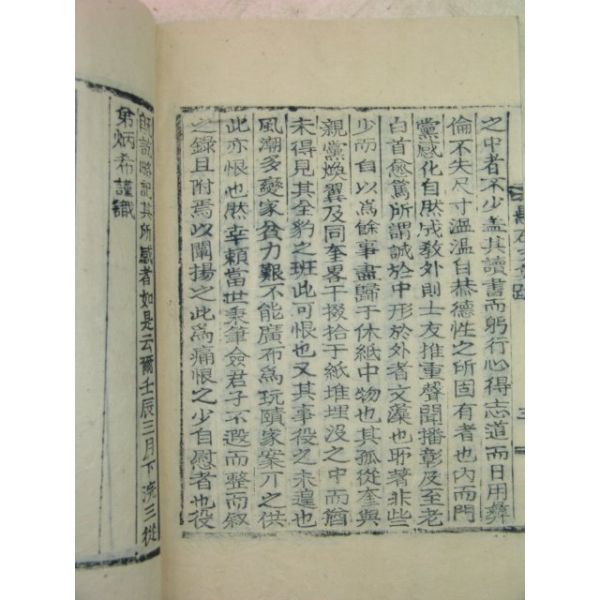 之中者不少盖其讀書而躬行心得志道而日用彛
倫不失尺寸溫溫自恭德性之所固有者也內而門
黨感化自然成敎外則士友推重聲聞播彰及至老
白首愈篤所謂誠於中形於外者文藻也耶著非些
少而自以爲餘事盡歸于休紙中物也其孤從奎與
親黨煥翼及同奎畧干掇拾于紙堆埋沒之中而猶
未得見其全豹之班此可恨也又其事役之未遑也
風潮多變家貧力艱不能廣布爲玩賾家案丌之供
此亦恨也然幸賴當世秉筆僉君子不遐而整而叙
之錄且附焉以闡揚之此爲痛恨之少自慰者也役
訖諮略記其所感者如是云爾壬辰三月下浣三從
弟炳希謹識
三